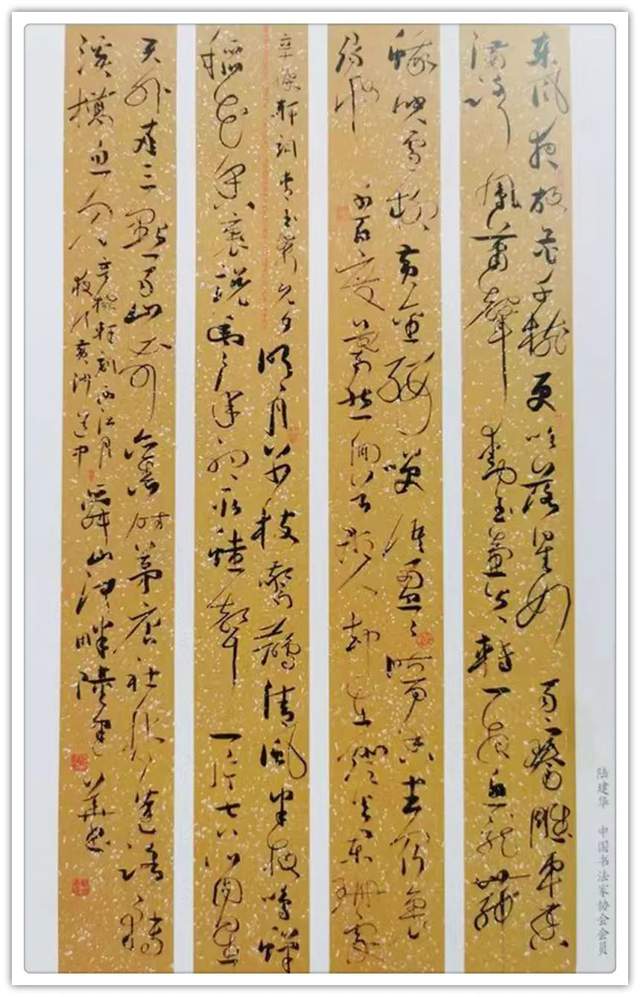 东风夜放花千树更吹落星如雨宝马雕车香
满路凤箫声动玉壶光转一夜鱼龙舞
蛾儿雪柳黄金缕笑语盈盈暗香去众里
寻他千百度蓦然回首那人却在灯火阑珊处
辛稼轩词青玉案元夕明月别枝惊鹊清风半夜鸣蝉
稻花香里说丰年听取蛙声一片七八个星
天外两三点雨山前旧时茅店社林边路转
溪桥忽见辛稼轩词西江月
夜行黄沙道中
舜山河畔陆建华书
陆建华 中国书法家协会会员